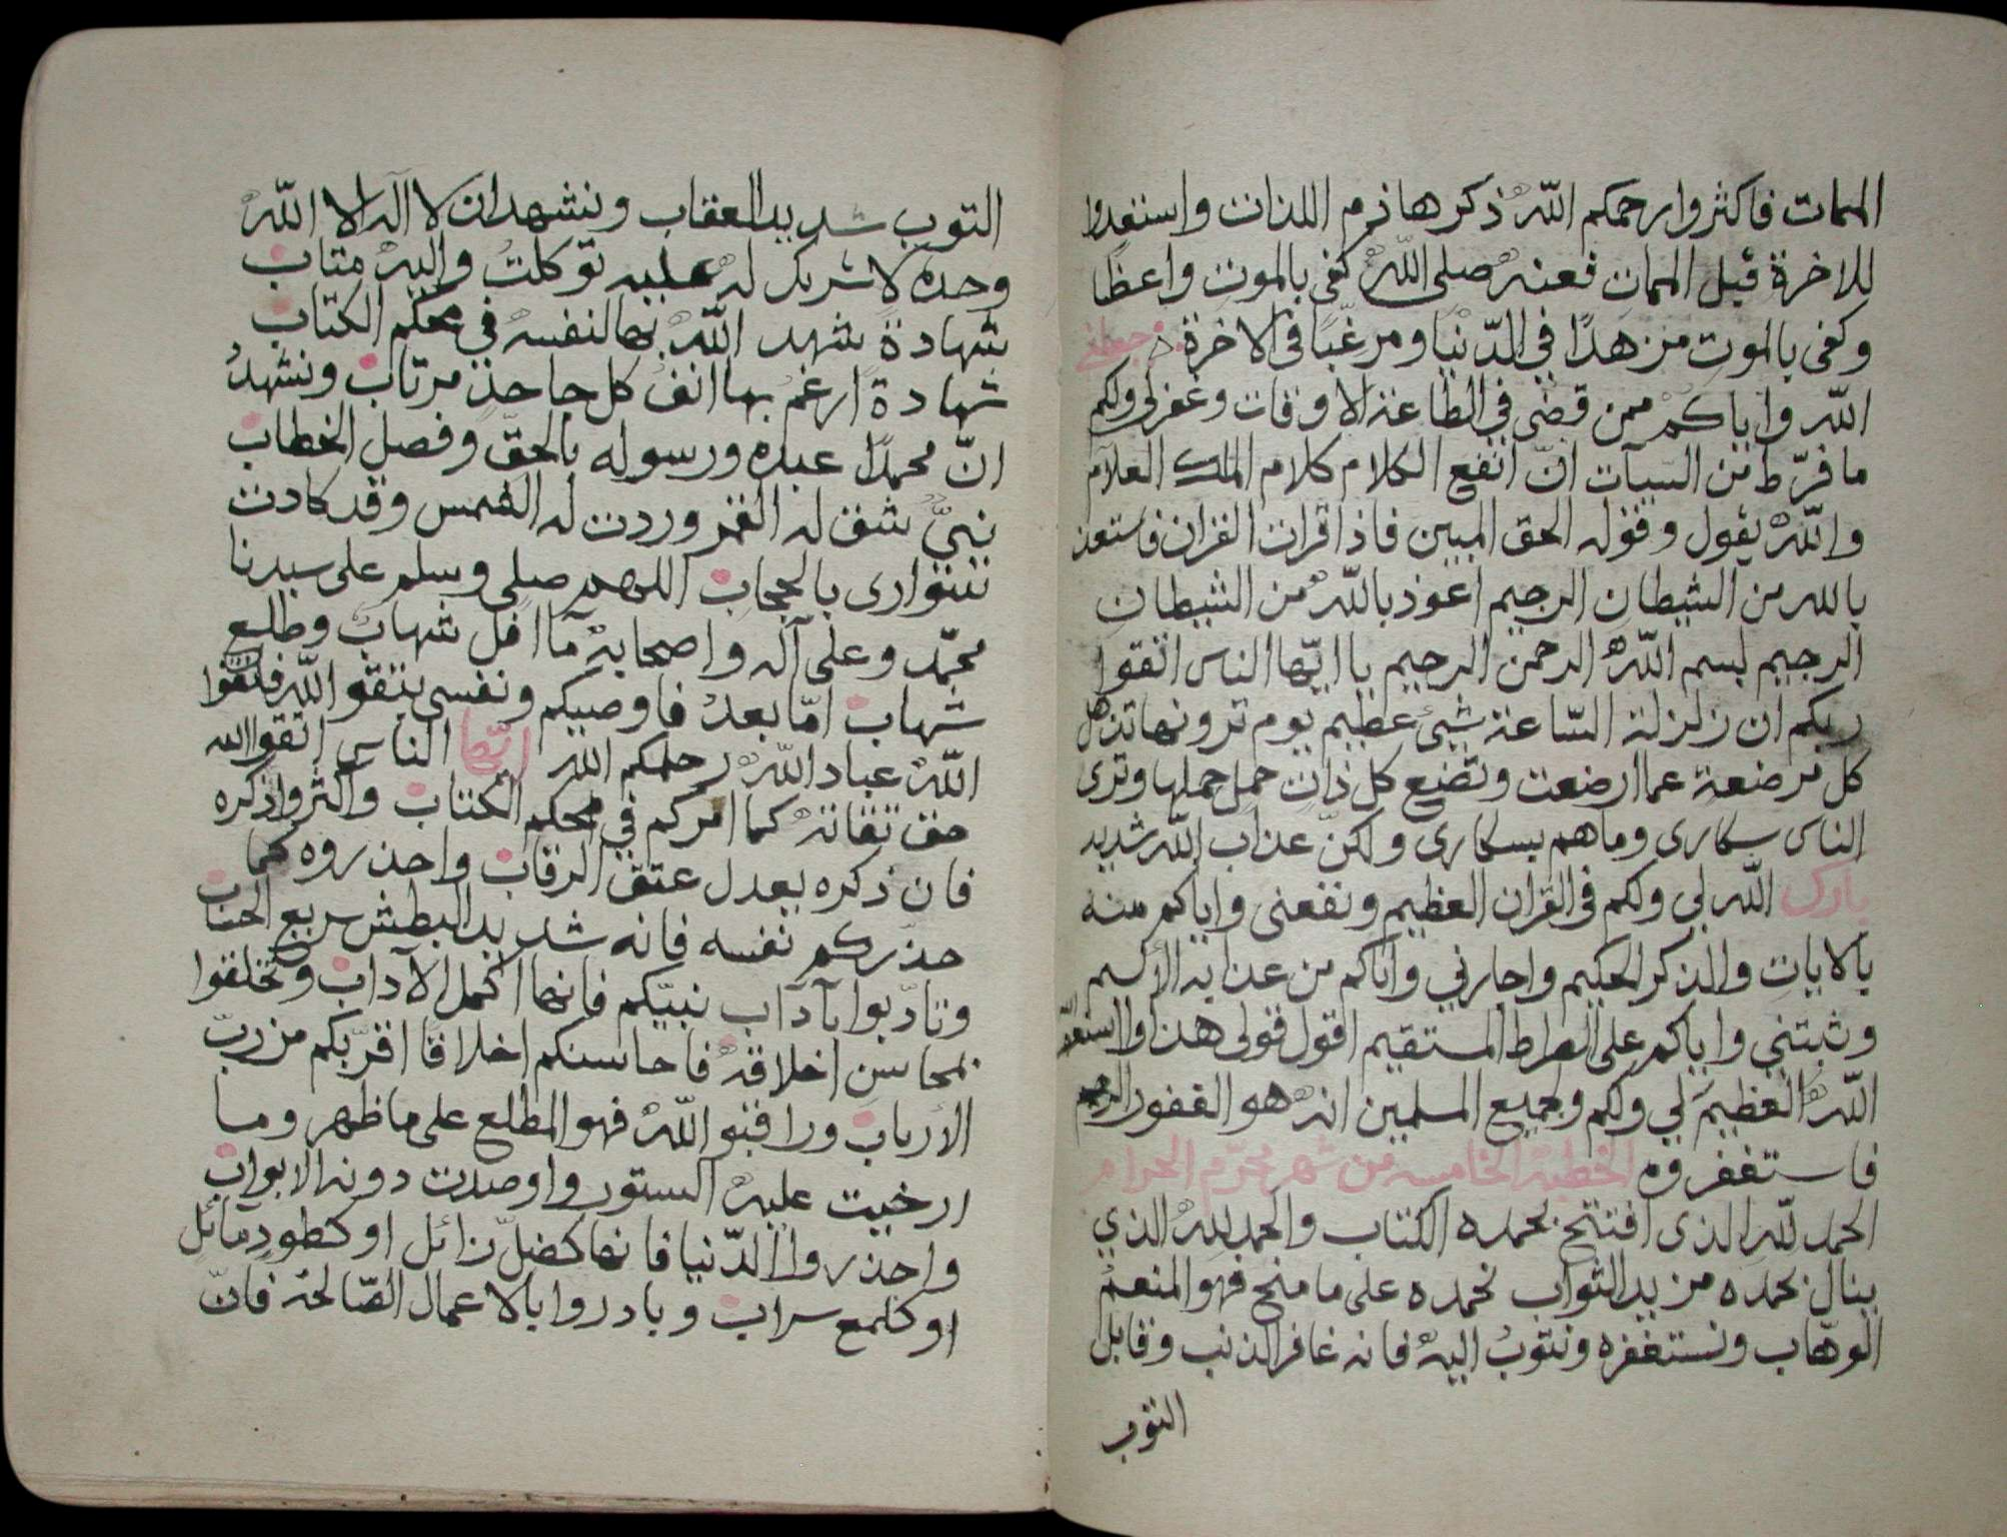 الممات فاكثروا رحمكم اللّه ذكر هاذم اللذات واستعدوا
للاخرة قبل الممات فعنه صلى اللّه كفى بالموت واعظا
وكفى بالموت مزهدًا في الدّنيا ومرغّبًا فى الاخرة جعلني
اللّه واياكم ممن قضى في الطاعة الاوقات وغفر لى ولكم
ما فرّط من السيآت انّ انفع الكلام كلام الملك العلام
واللّه يقول وقوله الحق المبين فاذا قرات القران فاستعذ
بالله من الشيطان الرجيم اعوذ باللّه من الشيطان
الرجيم بسم اللّه الرحمن الرحيم يا ايّها الناس اتقوا
ربكم ان زلزلة السّاعة شيئ عظيم يوم ترونها تذهل
كل مرضعة عما ارضعت وتضع كل ذات حمل حملها وترى
الناس سكارى وما هم بسكارى ولكنّ عذاب اللّه شديد
بارك اللّه لى ولكم فى القران العظيم ونفعنى واياكم منه
بالايات والذكر الحكيم واجارني واياكم من عذابه الأليم
وثبتني واياكم على الصراط المستقيم اقول قولى هذا واستغفر
اللّه العظيم لي ولكم وجميع المسلمين انه هو الغفور الرحيم
فاستغفروه الخطبة الخامسه من شهر محرّم الحرام
الحمد للّه الذى افتتح بحمده الكتاب والحمد للّه الذي
ينال بحمده مزيد الثواب نحمده على ما منح فهو المنعم
الوهّاب ونستغفره ونتوب اليه فانه غافر الذنب وقابل
التوب
التوب شديد العقاب ونشهد ان لا اله الا اللّه
وحده لا شريك له عليه توكلت واليه متاب
شهادة شهد اللّه بها لنفسه في محكم الكتاب
شهادة ارغم بها انف كل جاحد مرتاب ونشهد
انّ محمدًا عبده ورسوله بالحقّ وفصل الخطاب
نبيّ شق له القمر وردت له الشمس وقد كادت
تتوارى بالحجاب اللهم صلى وسلم على سيدنا
محمّد وعلى آله واصحابه ما افل شهاب وطلع
شهاب امّا بعد فاوصيكم ونفسى بتقو اللّه فاتقوا
اللّه عباد اللّه رحمكم الله ايّها الناس اتقوا الله
حق تقاته كما امركم في محكم الكتاب واكثروا ذكره
فان ذكره يعدل عتق الرقاب واحذروه كما
حذّركم نفسه فانه شديد البطش سريع الحساب
وتادّبوا بآداب نبيّكم فانها اكمل الآداب وتخلقوا
بمحاسن اخلاقه فاحاسنكم اخلاقا اقرّبكم من ربّ
الأرباب وراقبو اللّه فهو المطلع على ما ظهر وما
ارخيت عليه الستور واوصدت دونه الابواب
واحذروا الدّنيا فانها كضلّ زائل او كطود مائل
او كلمع سراب وبادروا بالاعمال الصّالحة فانّ